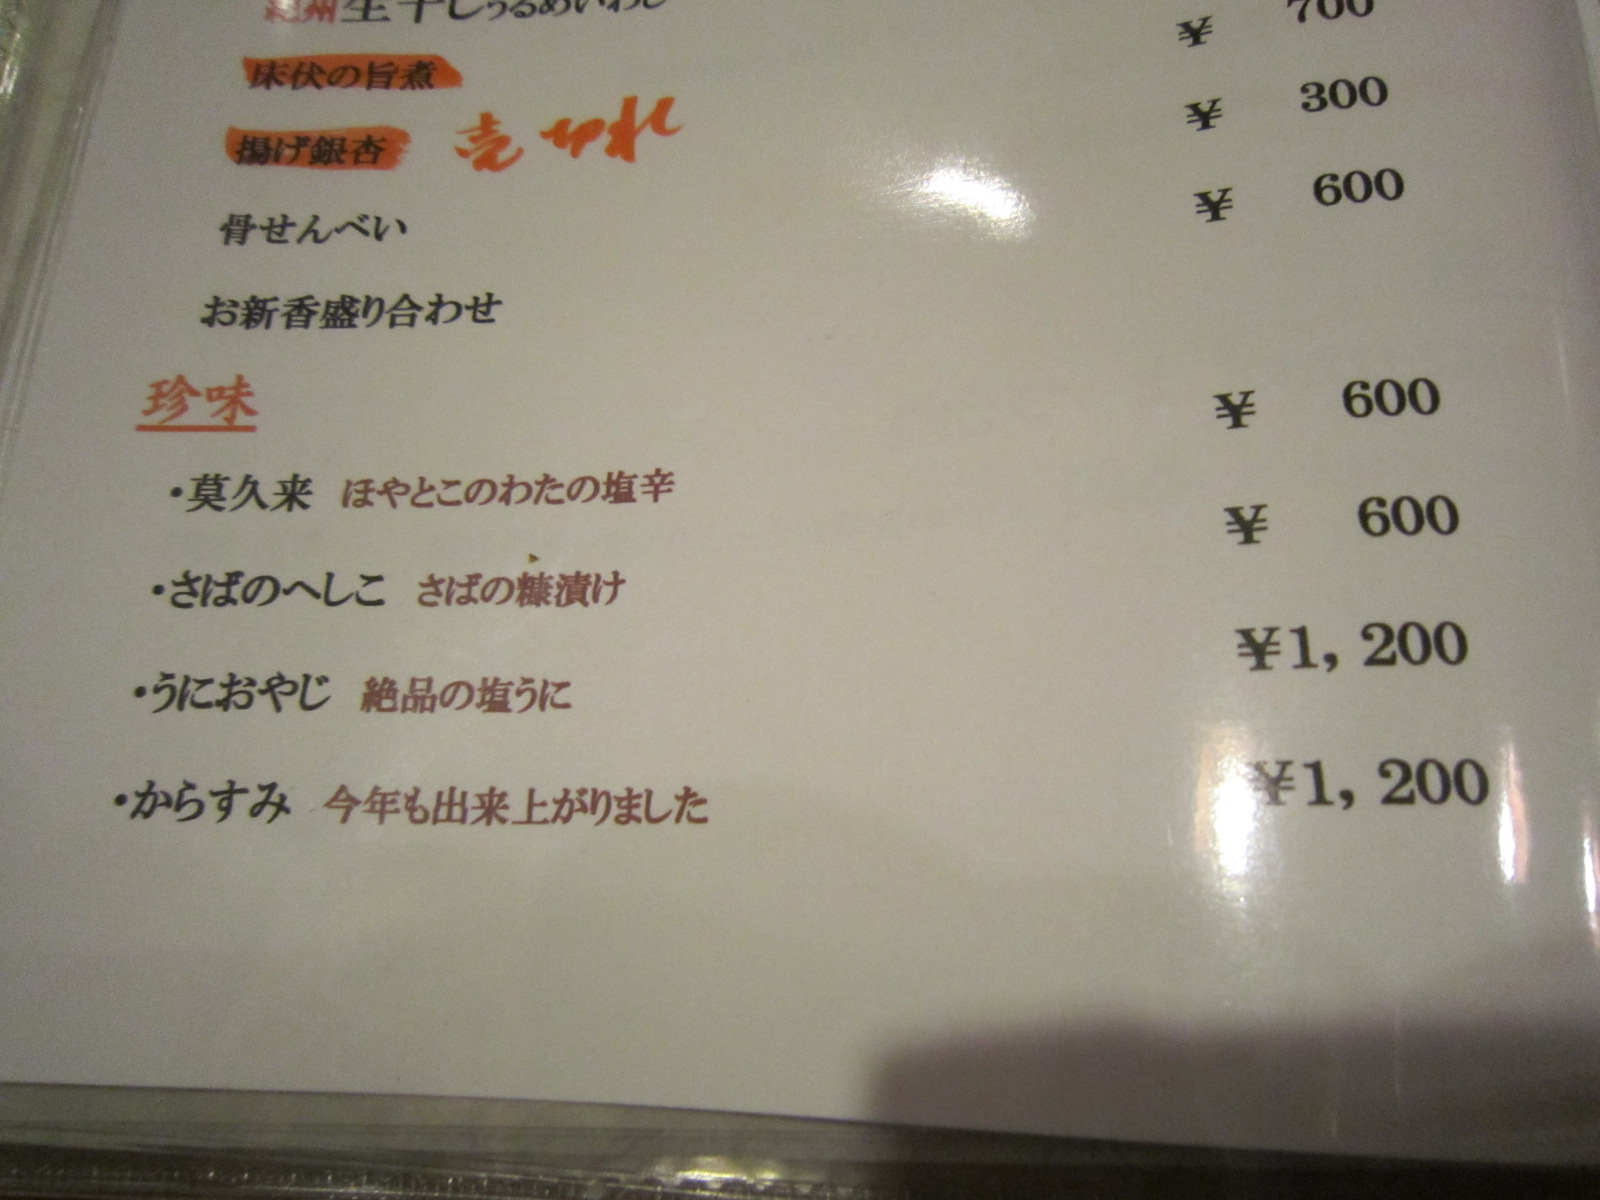 紀州 生干しうるめいわし
床伏の旨煮 ¥ 700
揚げ銀杏 売切れ ¥ 300
骨せんべい ¥ 600
お新香盛り合わせ
珍味
・莫久来 ほやとこのわたの塩辛 ¥ 600
・さばのへしこ さばの糠漬け ¥ 600
・うにおやじ 絶品の塩うに ¥1,200
・からすみ 今年も出来上がりました ¥1,200